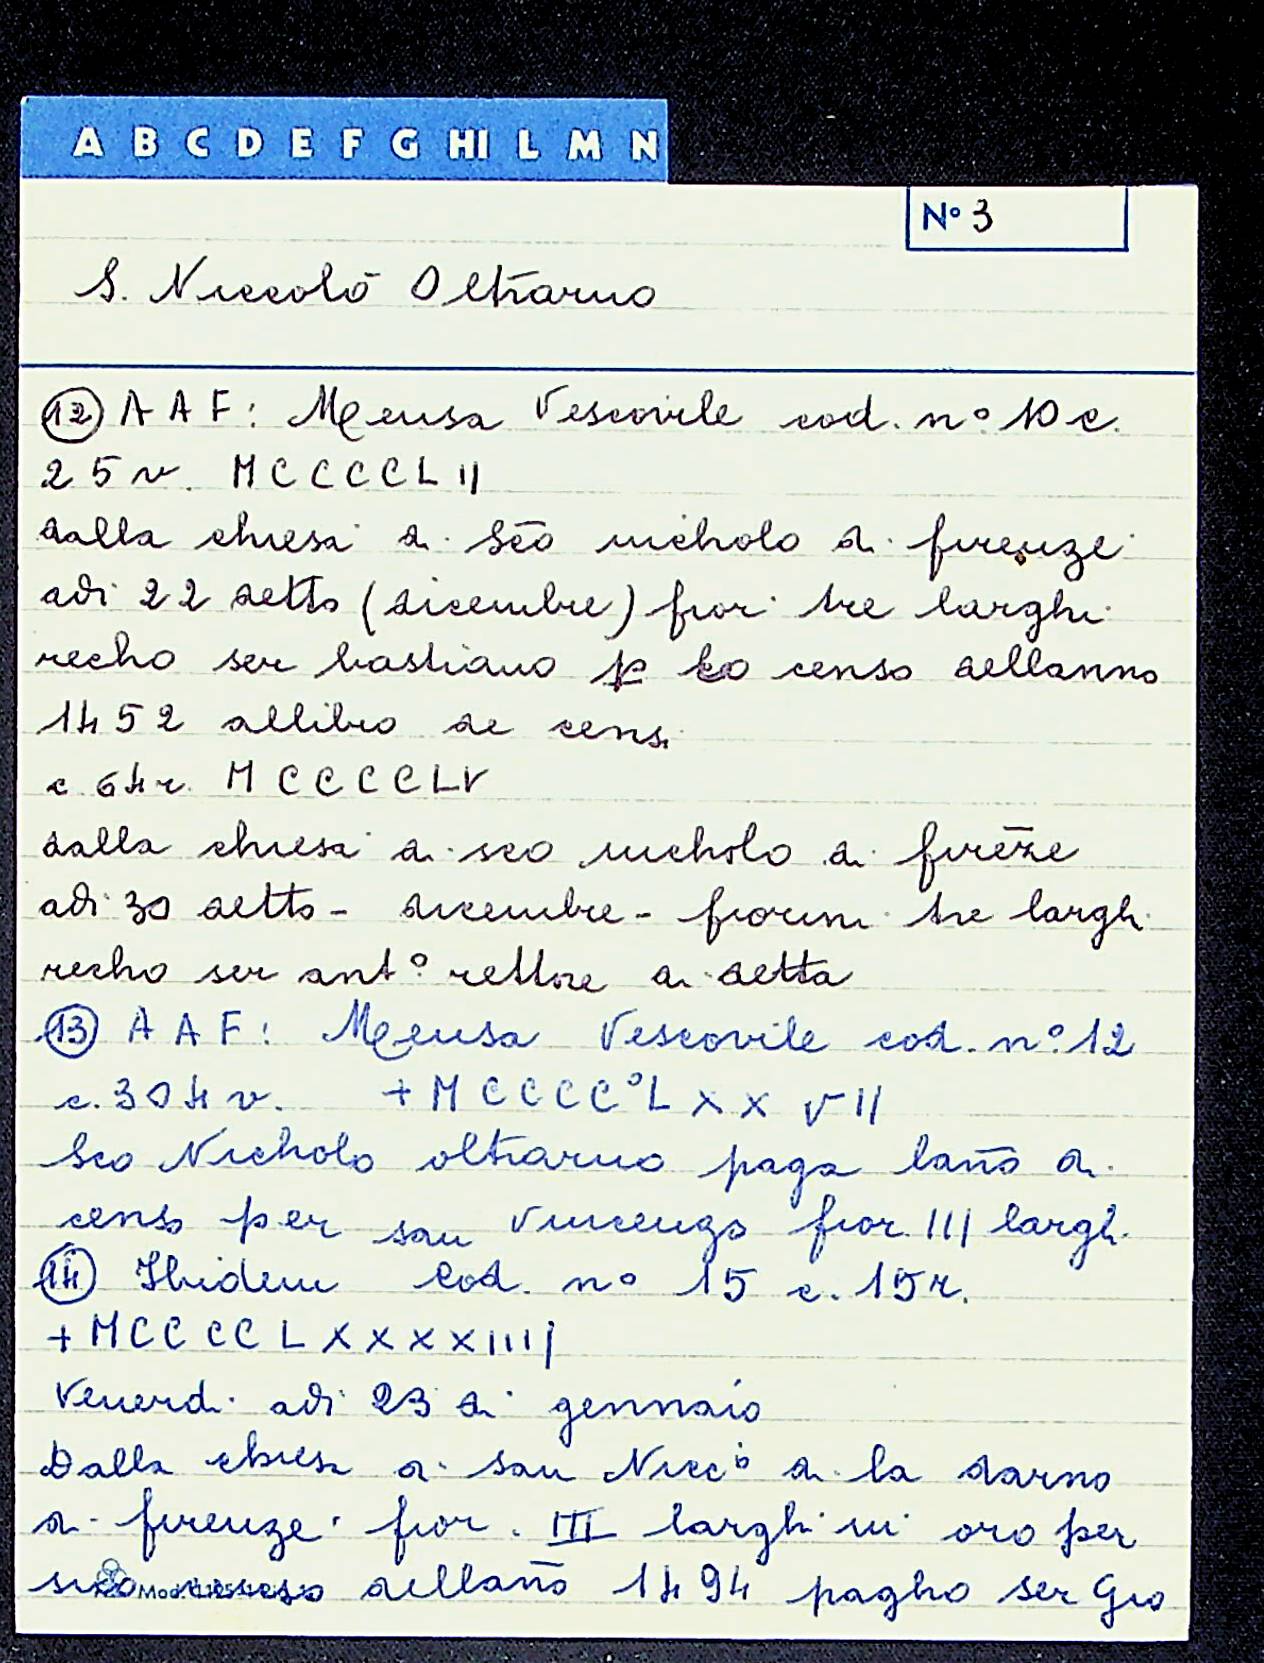 A B C D E F G HI L M N
N° 3
S. Niccolò Oltrarno
(12) A A F: Mensa Vescovile cod. n° 10 c.
25 v. MCCCCLII
dalla chiesa di Sc̄o nicholo di firenze
adi 22 detto (dicembre) fior. tre larghi
recho ser bastiano p lo censo dellanno
1452 allibro de censi
c. 64 r. MCCCCLV
dalla chiesa di sco nicholo di firēze
adi 30 detto - dicembre - fiorini tre larghi
recho ser ant° rettore di detta
(13) A A F: Mensa Vescovile cod. n° 12
c. 304 v. + MCCCC°LXXVII
Sco Nicholo oltrarno paga lan̄o di
censo per san Vincenzo fior. III larghi
(14) Ibidem Cod. n° 15 c. 15 r.
+ MCCCCLXXXXIIIj
Venerdi adi 23 di gennaio
Dalla chiesa di san Nicc° di la darno
di firenze fior. III larghi in oro per
suo censo dellan̄o 1494 pagho ser Gio